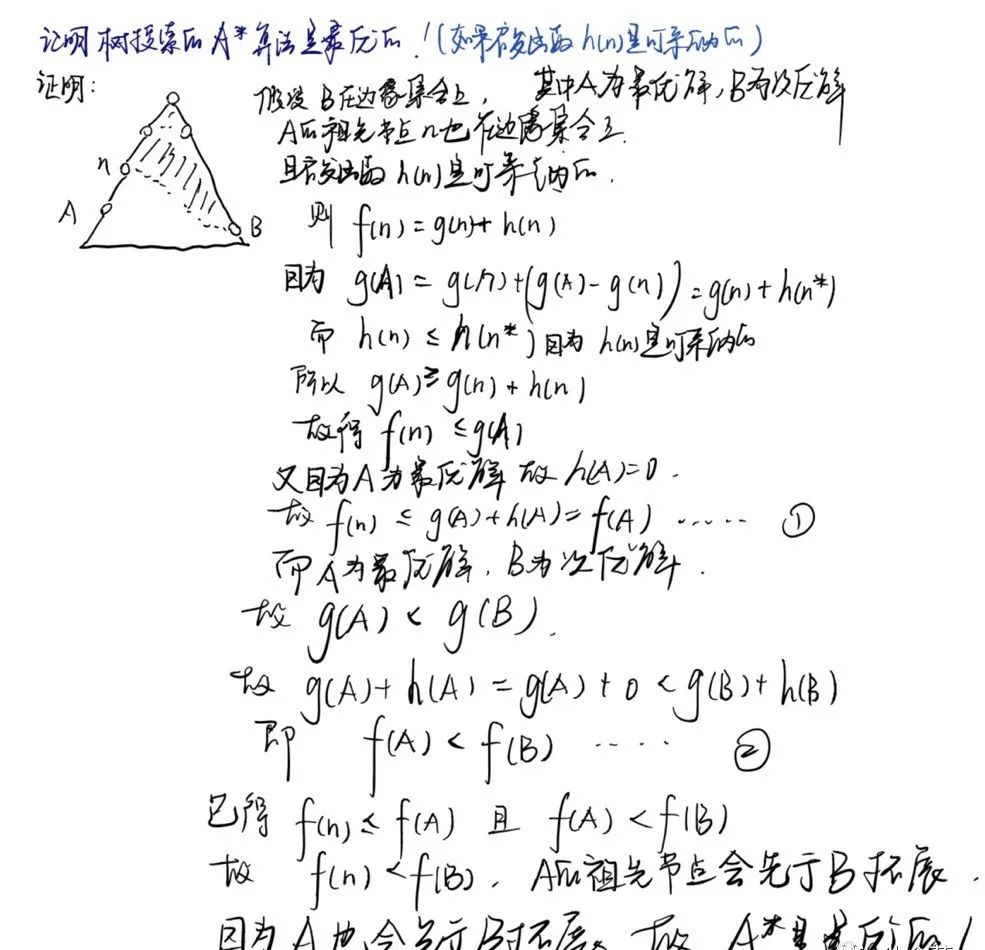 证明树搜索的A*算法是最优的！(如果启发函数h(n)是可采纳的)
证明：
假设B在边缘集合上， 其中A为最优解，B为次优解
A的祖先节点n也在边缘集合上
且启发函数h(n)是可采纳的.
n
A
B
则 f(n)=g(n)+h(n)
因为 g(A)=g(n)+(g(A)-g(n))=g(n)+h(n*)
而 h(n)≤h(n*) 因为h(n)是可采纳的
所以 g(A)≥g(n)+h(n)
故得 f(n)≤g(A)
又因为A为最优解 故h(A)=0.
故 f(n)≤g(A)+h(A)=f(A) ...... ①
而A为最优解，B为次优解.
故 g(A)<g(B).
故 g(A)+h(A)=g(A)+0<g(B)+h(B)
即 f(A)<f(B) ..... ②
已得 f(n)≤f(A) 且 f(A)<f(B)
故 f(n)<f(B)，A的祖先节点会先于B拓展.
因为A也会先于B拓展，故 A*是最优的！